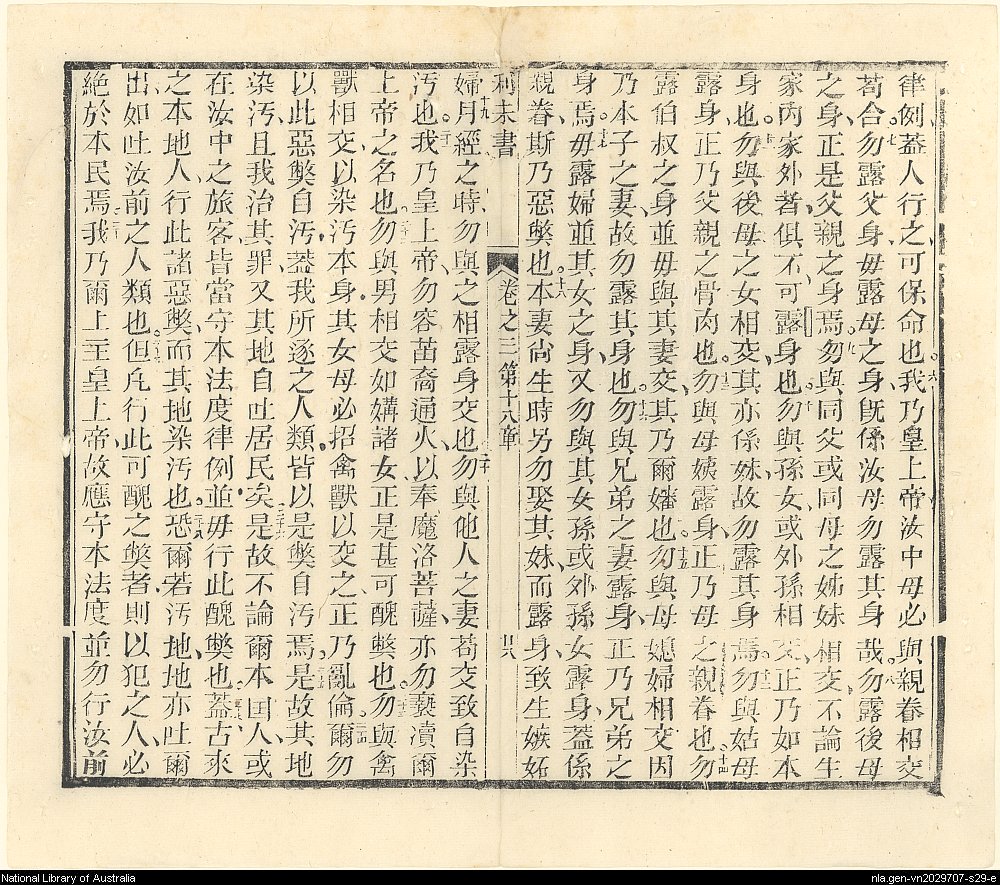 律例蓋人行之可保命也六我乃皇上帝汝中毋必與親眷相交
苟合七勿露父身毋露母之身旣係汝母勿露其身哉八勿露後母
之身正是父親之身焉九勿與同父或同母之姊妹相交不論生
家內家外者俱不可露身也十勿與孫女或外孫相交正乃如本
身也十一勿與後母之女相交其亦係妹故勿露其身焉十二勿與姑母
露身正乃父親之骨肉也十三勿與母姨露身正乃母之親眷也十四勿
露伯叔之身並毋與其妻交其乃爾嬸也十五勿與母媳婦相交因
乃本子之妻故勿露其身也十六勿與兄弟之妻露身正乃兄弟之
身焉十七毋露婦並其女之身又勿與其女孫或外孫女露身蓋係
親眷斯乃惡獘也十八本妻尙生時另勿娶其妹而露身致生嫉妬
利未書 卷之三 第十八章 廿八
婦十九月經之時勿與之相露身交也二十勿與他人之妻苟交致自染
汚也二一我乃皇上帝勿容苗裔通火以奉魔洛菩薩亦勿褻瀆爾
上帝之名也二二勿與男相交如媾諸女正是甚可醜獘也二三勿與禽
獸相交以染汚本身其女母必招禽獸以交之正乃亂倫二四爾勿
以此惡獘自汚蓋我所逐之人類皆以是獘自汚焉二五是故其地
染汚且我治其罪又其地自吐居民矣二六是故不論爾本国人或
在汝中之旅客皆當守本法度律例並毋行此醜獘也二七蓋古來
之本地人行此諸惡獘而其地染汚也二八恐爾若汚地地亦吐爾
出如吐汝前之人類也二九但凡行此可醜之獘者則以犯之人必
絕於本民焉三十我乃爾上主皇上帝故應守本法度並勿行汝前
National Library of Australia
nla.gen-vn2029707-s29-e